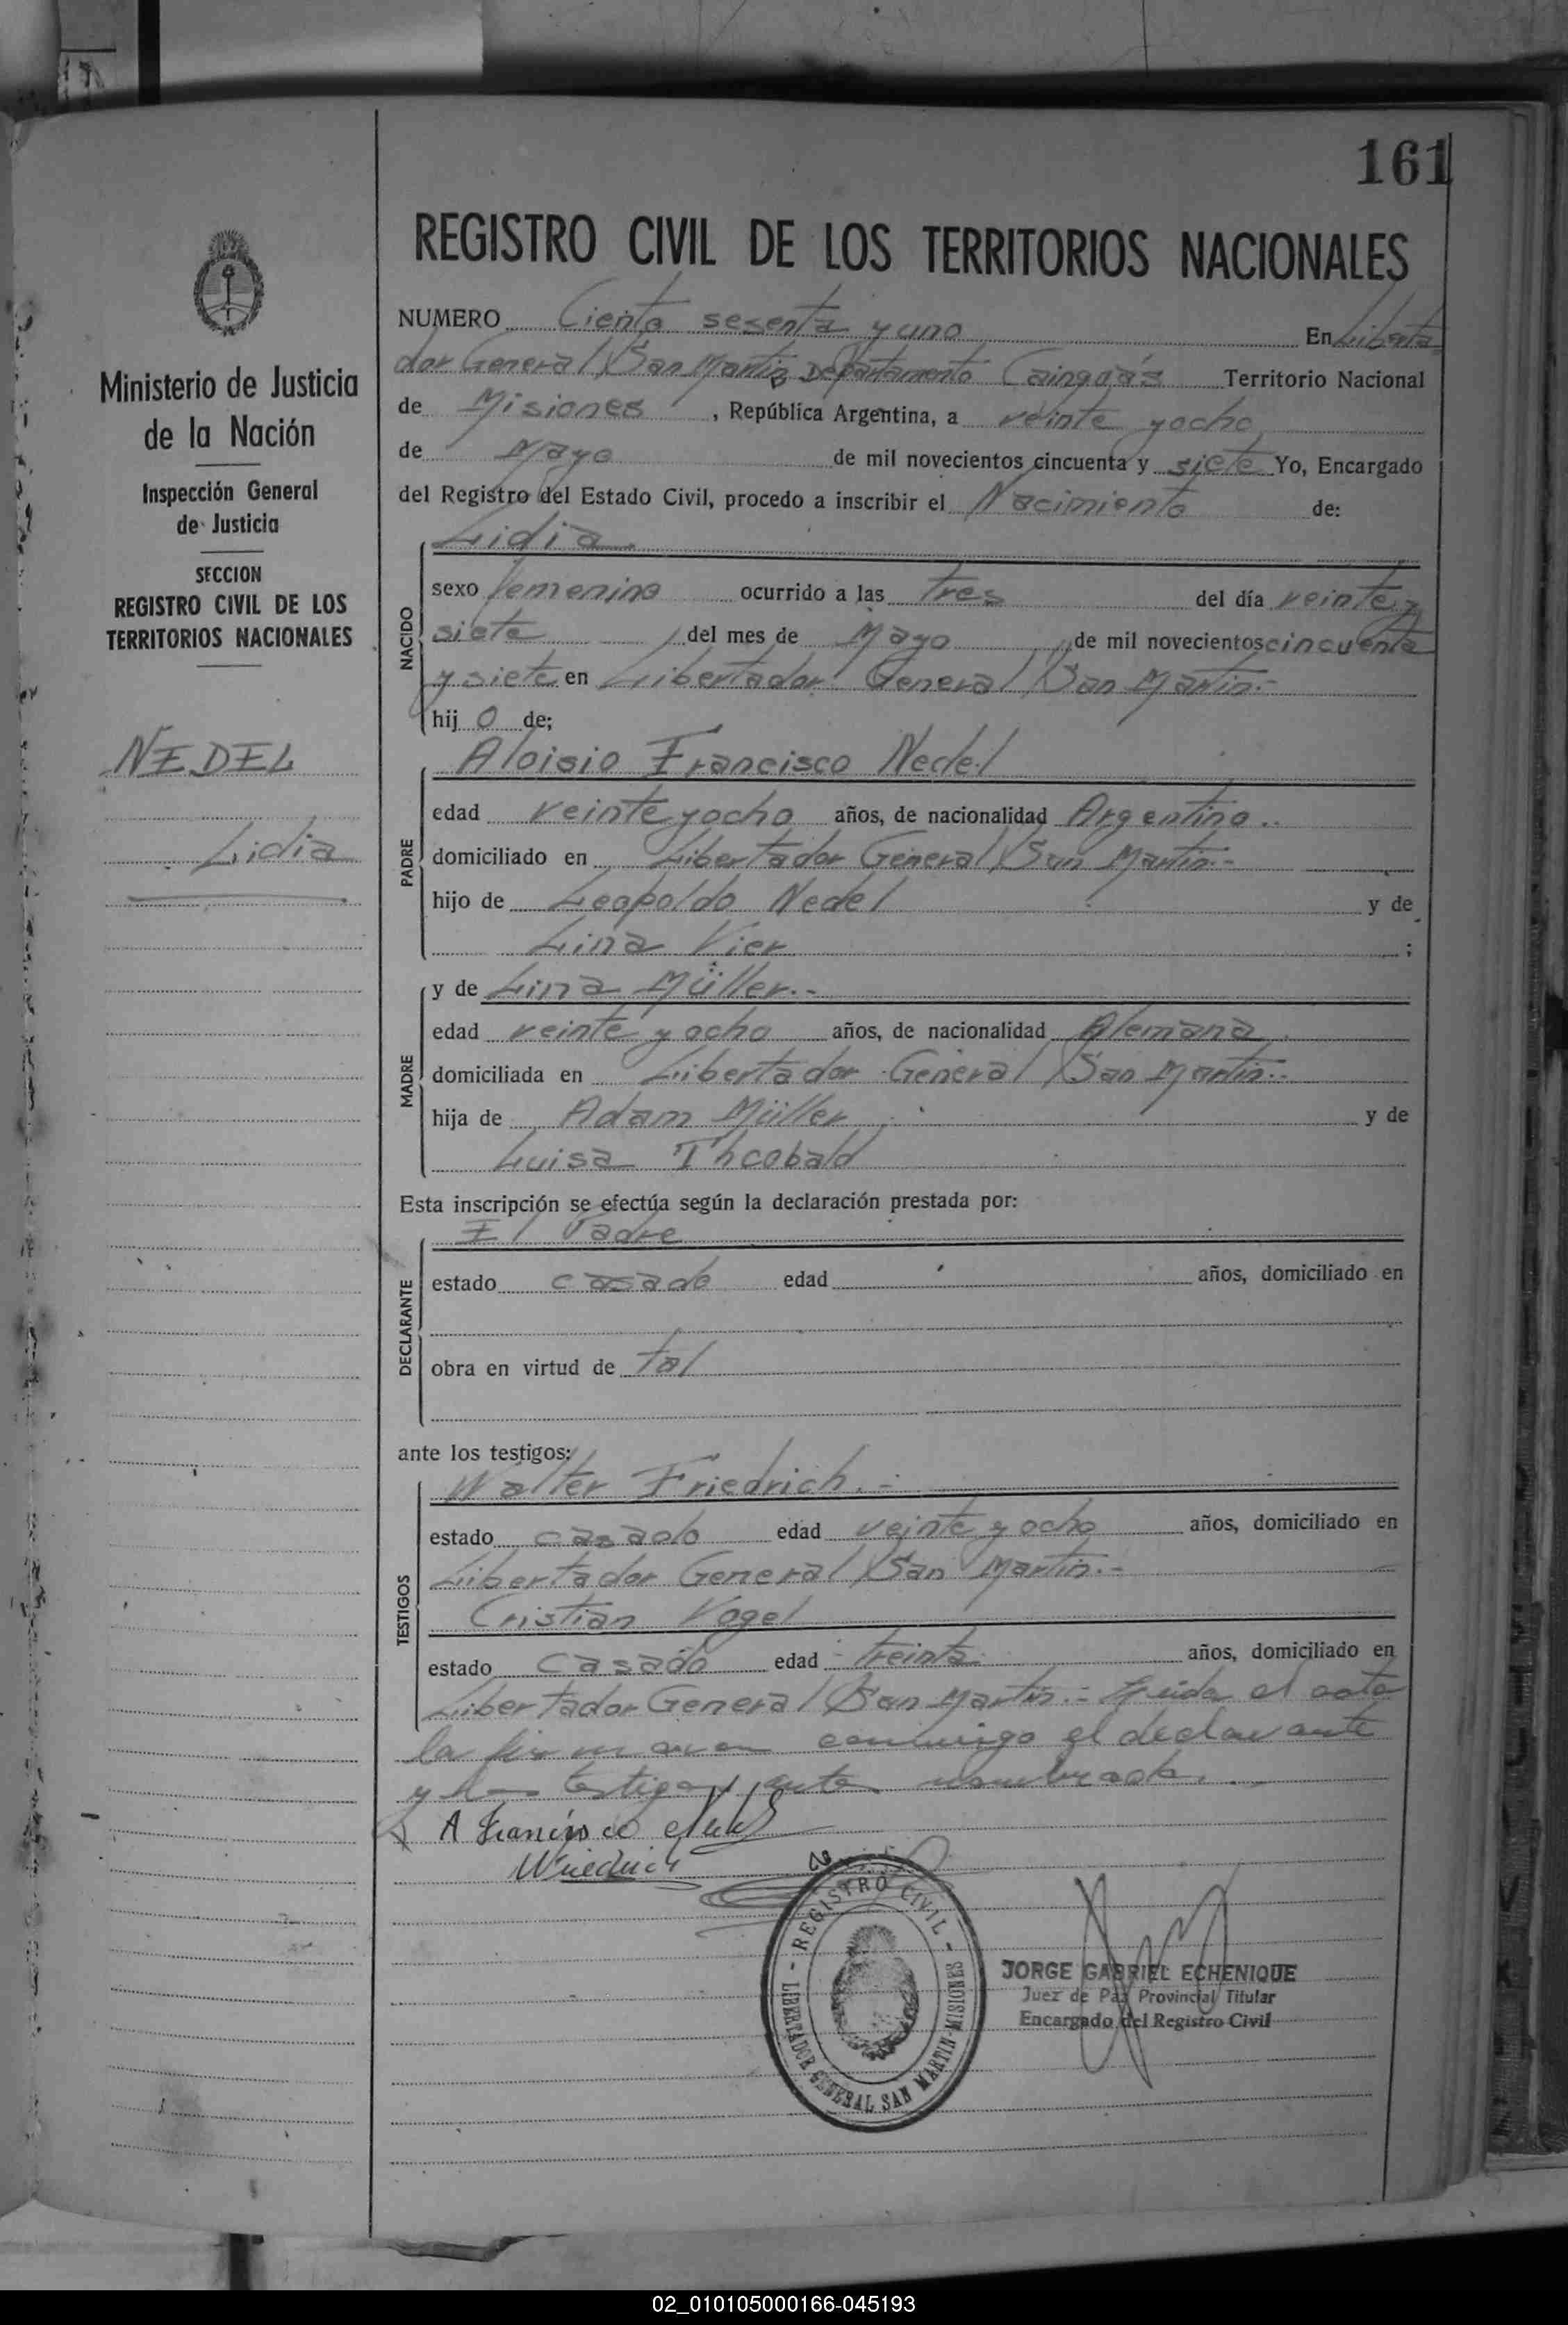 161
REGISTRO CIVIL DE LOS TERRITORIOS NACIONALES
Ministerio de Justicia
de la Nación
Inspección General
de Justicia
SECCION
REGISTRO CIVIL DE LOS
TERRITORIOS NACIONALES
NEDEL
Lidia
NUMERO Ciento sesenta y uno En Liberta
dor General San Martin Departamento Caingúas Territorio Nacional
de Misiones, República Argentina, a veinte y ocho
de Mayo de mil novecientos cincuenta y siete Yo, Encargado
del Registro del Estado Civil, procedo a inscribir el Nacimiento de:
NACIDO
Lidia
sexo femenino ocurrido a las tres del día veinte y
siete del mes de Mayo, de mil novecientos cincuenta
y siete en Libertador General San Martin.-
hij o de;
PADRE
Aloisio Francisco Nedel
edad veinte y ocho años, de nacionalidad Argentino..
domiciliado en Libertador General San Martin.-
hijo de Leopoldo Nedel y de
Lina Vier ;
MADRE
y de Lina Müller.-
edad veinte y ocho años, de nacionalidad Alemana
domiciliada en Libertador General San Martin.-
hija de Adam Müller y de
Luisa Theobald
Esta inscripción se efectúa según la declaración prestada por:
DECLARANTE
El Padre
estado casado edad años, domiciliado en
obra en virtud de tal
ante los testigos:
TESTIGOS
Walter Friedrich.-
estado casado edad veinte y ocho años, domiciliado en
Libertador General San Martin.-
Cristian Vogel
estado casado edad treinta años, domiciliado en
Libertador General San Martin.- Leida el acta
la firmaron conmigo el declarante
y los testigos antes nombrados.
A Francisco Nedel
WFriedrich
- REGISTRO CIVIL -
LIBERTADOR GENERAL SAN MARTIN-MISIONES
JORGE GABRIEL ECHENIQUE
Juez de Paz Provincial Titular
Encargado del Registro Civil
02_010105000166-045193